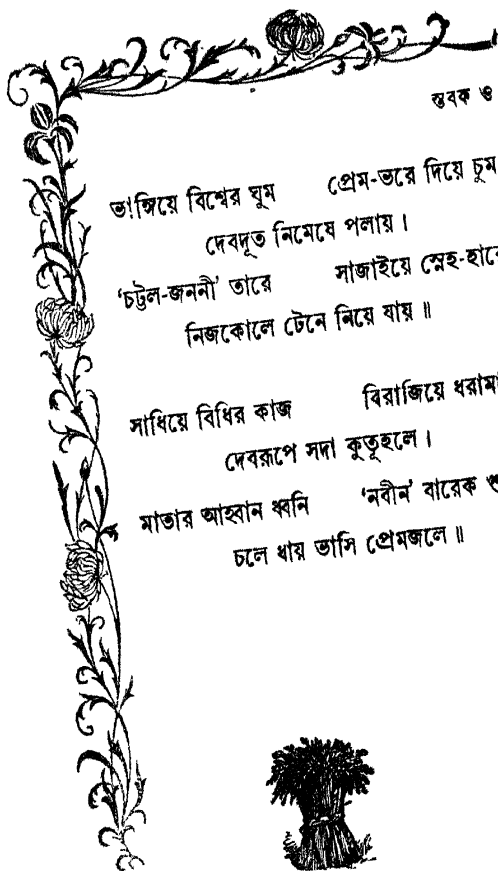 স্তবক ও
ভাঙ্গিয়ে বিশ্বের ঘুম প্রেম-ভরে দিয়ে চুম
দেবদূত নিমেষে পলায়।
‘চট্টল-জননী’ তারে সাজাইয়ে স্নেহ-হারে
নিজকোলে টেনে নিয়ে যায়॥
সাধিয়ে বিধির কাজ বিরাজিয়ে
দেবরূপে সদা কুতূহলে।
মাতার আহ্বান ধ্বনি ‘নবীন’ বারেক
চলে ধায় ভাসি প্রেমজলে॥